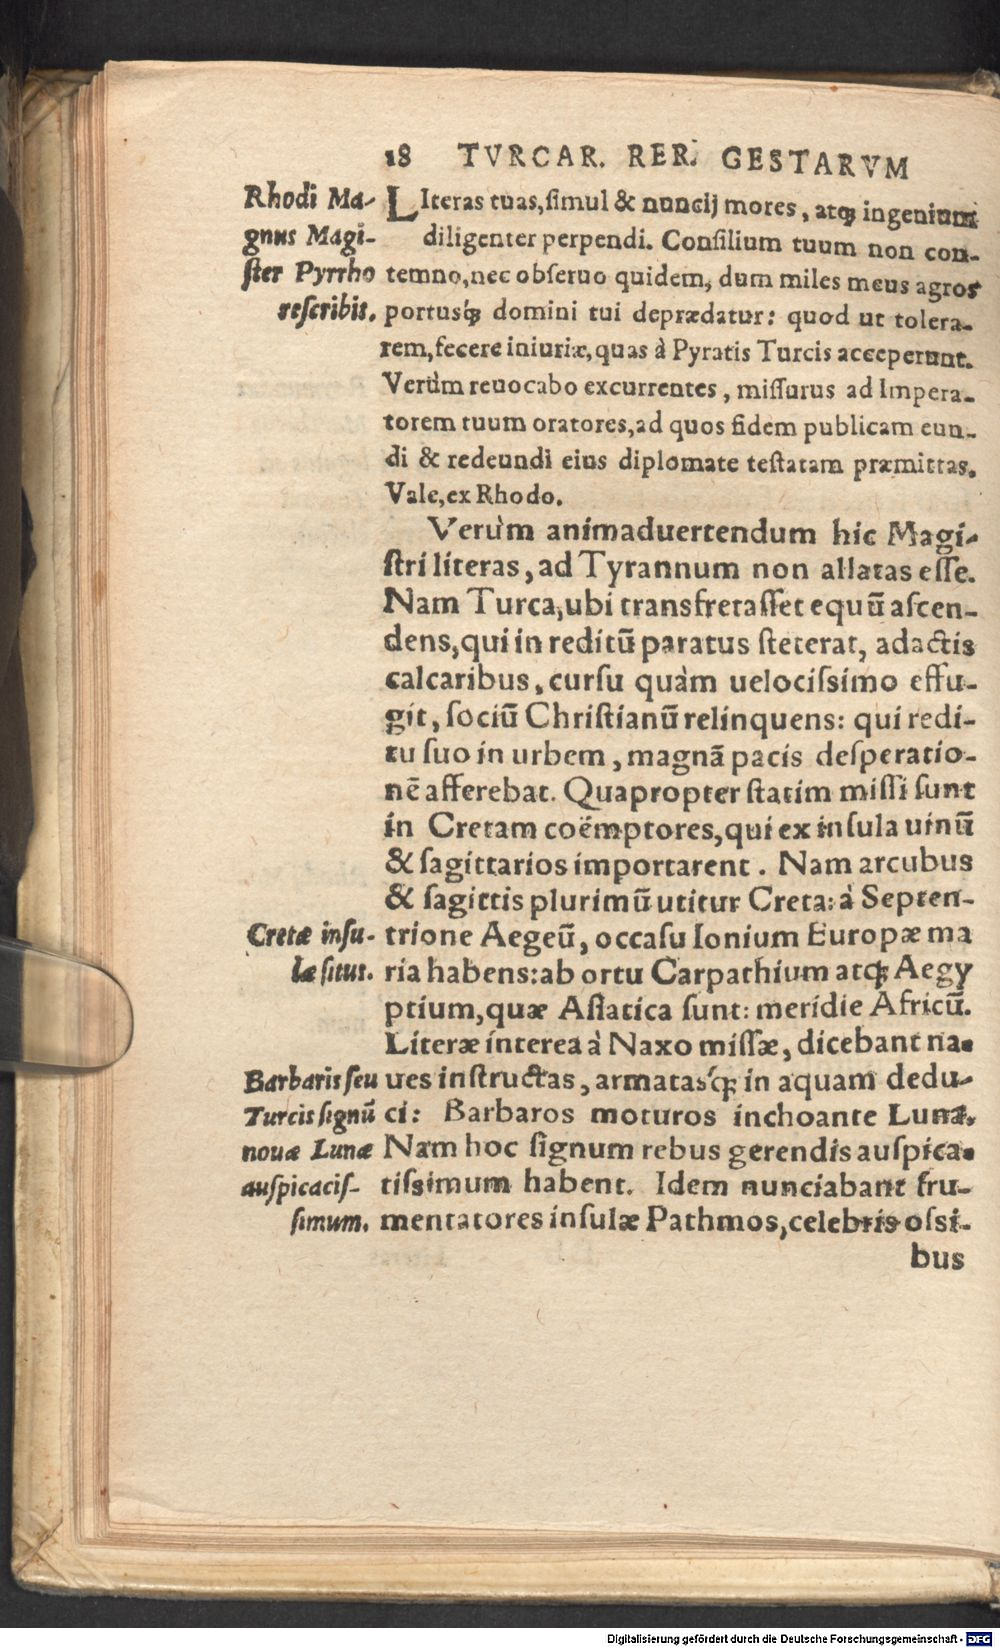 18 TVRCAR. RER. GESTARVM
Rhodi Ma-
gnus Magi-
ster Pyrrho
rescribit.
LIteras tuas, simul & nuncij mores, atq; ingenium
diligenter perpendi. Consilium tuum non con-
temno, nec obseruo quidem, dum miles meus agros
portusq́; domini tui deprædatur: quod ut tolera-
rem, fecere iniuriæ, quas à Pyratis Turcis acceperunt.
Verùm reuocabo excurrentes, missurus ad Impera-
torem tuum oratores, ad quos fidem publicam eun-
di & redeundi eius diplomate testatam præmittas.
Vale, ex Rhodo.
Verùm animaduertendum hic Magi-
stri literas, ad Tyrannum non allatas esse.
Nam Turca, ubi transfretasset equū ascen-
dens, qui in reditū paratus steterat, adactis
calcaribus, cursu quàm uelocissimo effu-
git, sociū Christianū relinquens: qui redi-
tu suo in urbem, magnā pacis desperatio-
nē afferebat. Quapropter statim missi sunt
in Cretam coëmptores, qui ex insula uinū
& sagittarios importarent. Nam arcubus
& sagittis plurimū utitur Creta: à Septen-
Cretæ insu-
læ situs.
trione Aegeū, occasu Ionium Europæ ma
ria habens: ab ortu Carpathium atq; Aegy
ptium, quæ Asiatica sunt: meridie Africū.
Literæ interea à Naxo missæ, dicebant na-
Barbaris seu
Turcis signū
nouæ Lunæ
auspicacis-
simum.
ues instructas, armatasq́; in aquam dedu-
ci: Barbaros moturos inchoante Luna.
Nam hoc signum rebus gerendis auspica-
tissimum habent. Idem nunciabant fru-
mentatores insulæ Pathmos, celebris ossi-
bus
Digitalisierung gefördert durch die Deutsche Forschungsgemeinschaft - DFG